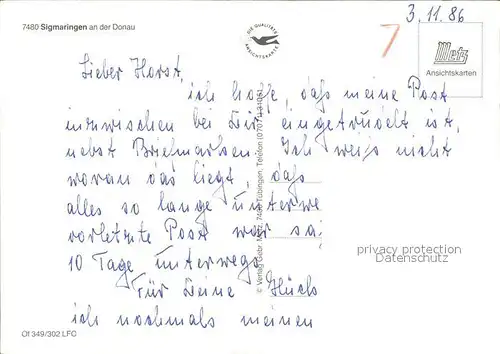 7480 Sigmaringen an der Donau
DIE QUALITÄTS ANSICHTSKARTE
7
3.11.86
Metz
Ansichtskarten
Lieber Horst,
ich hoffe, daß meine Post
inzwischen bei Dir eingetrudelt ist,
nebst Briefmarken. Ich weiß nicht
woran das liegt, daß
alles so lange unterwe
vorletzte Post war sa:
10 Tage unterwegs
Für Deine Glück
ich nochmals meinen
© Verlag Gebr. Metz, 7400 Tübingen, Telefon (07071)
privacy protection
Datenschutz
Of 349/302 LFC